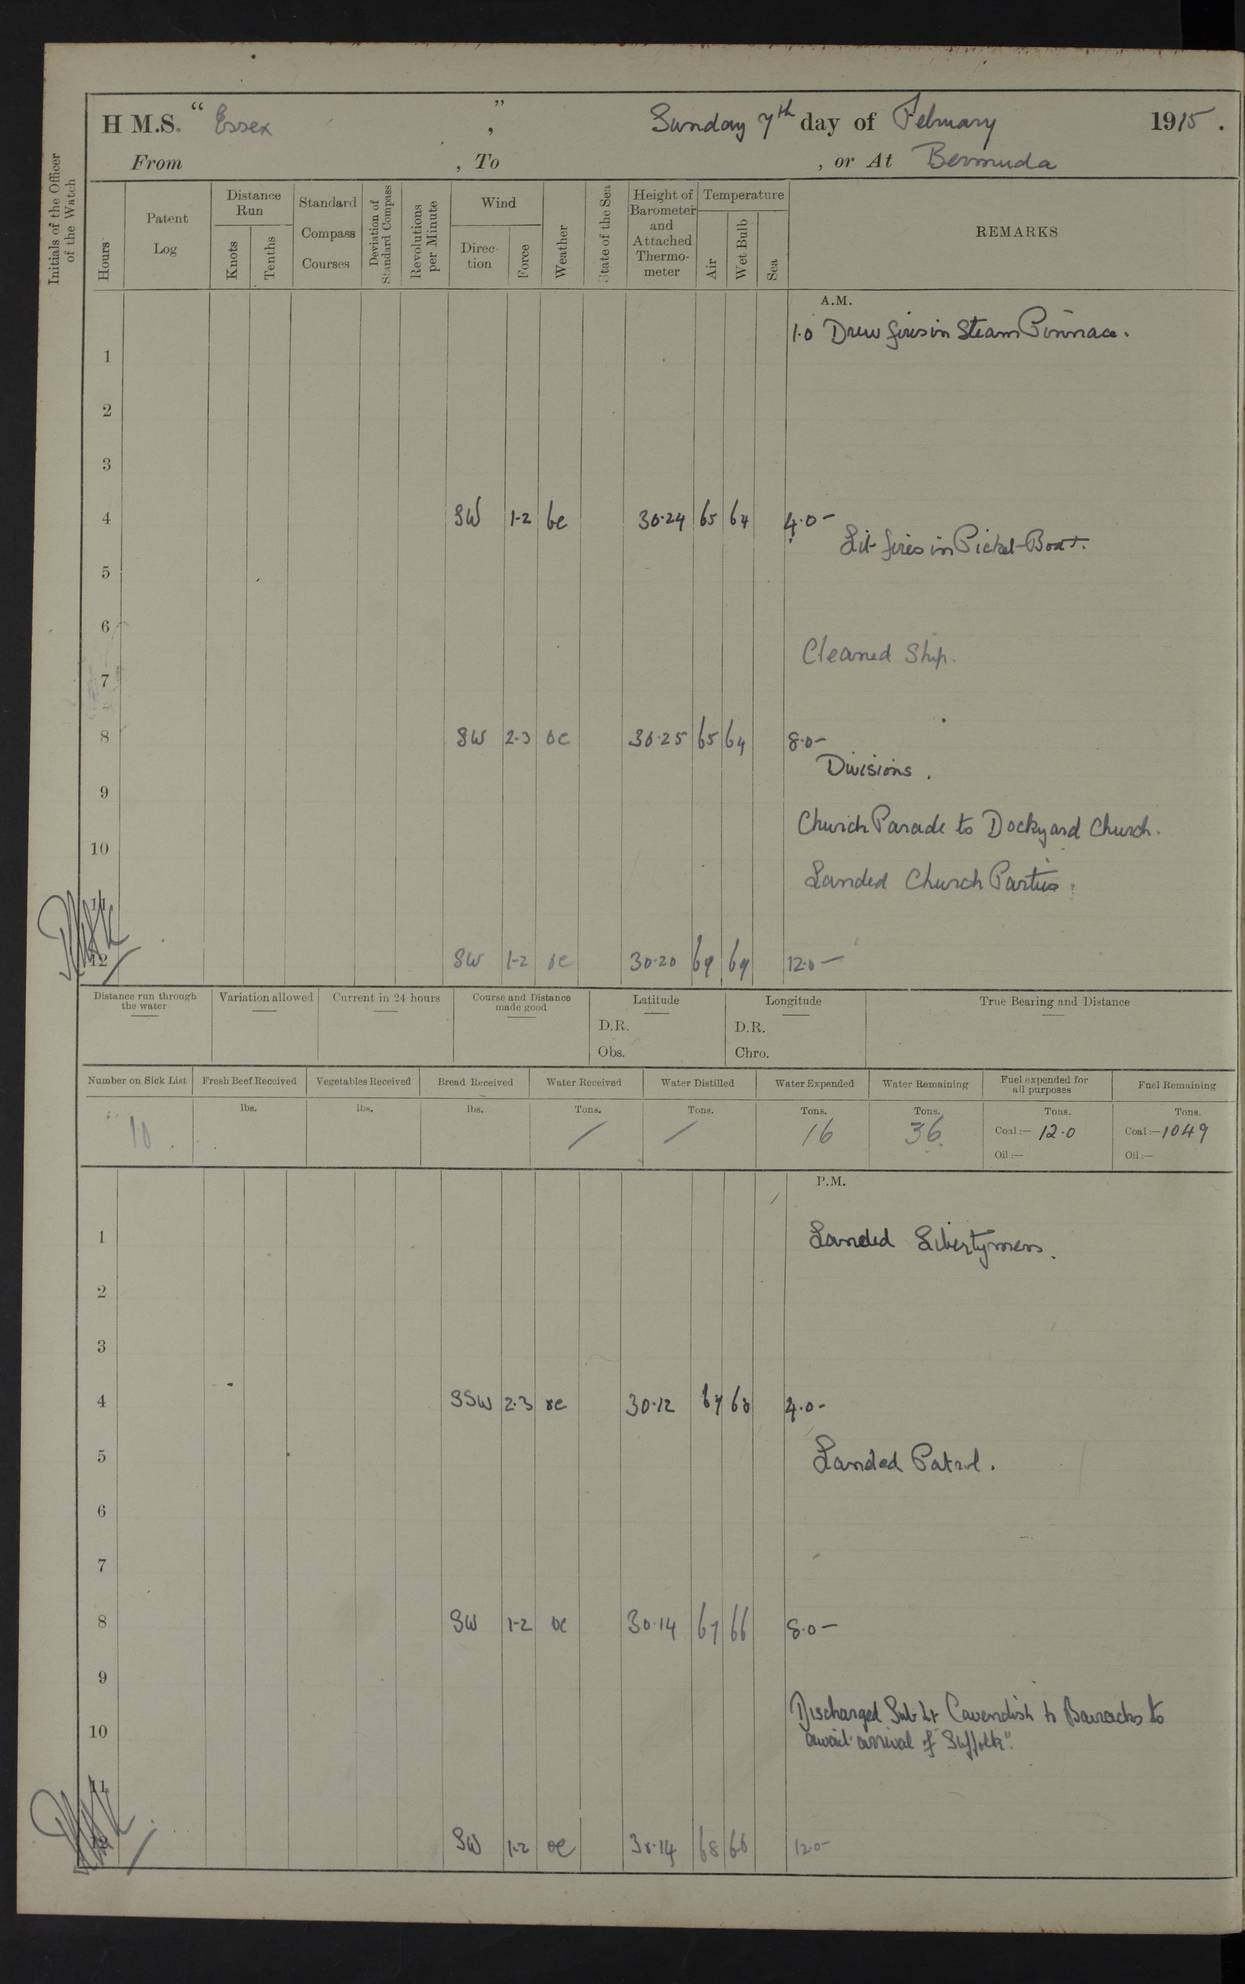 H M.S. " Essex " , Sunday 7th day of February 1915 .
From , To , or At Bermuda
Initials of the Officer of the Watch
Hours
Patent Log
Distance Run
Knots
Tenths
Standard Compass Courses
Deviation of Standard Compass
Revolutions per Minute
Wind
Direc- tion
Force
Weather
State of the Sea
Height of Barometer and Attached Thermo- meter
Temperature
Air
Wet Bulb
Sea
REMARKS
A.M.
1.0 Drew fires in Steam Pinnace.
1
2
3
4 SW 1-2 bc 30.24 65 64 4.0 -
Lit fires in Picket Boat.
5
6
Cleaned Ship.
7
8 SW 2.3 oc 30.25 65 64 8.0 -
Divisions .
9
Church Parade to Dockyard Church.
10
Landed Church Parties.
11
12 SW 1-2 oc 30.20 69 69 12.0 -
Distance run through the water
Variation allowed
Current in 24 hours
Course and Distance made good
Latitude
D.R.
Obs.
Longitude
D.R.
Chro.
True Bearing and Distance
Number on Sick List
Fresh Beef Received
Vegetables Received
Bread Received
Water Received
Water Distilled
Water Expended
Water Remaining
Fuel expended for all purposes
Fuel Remaining
lbs. lbs. lbs. Tons. Tons. Tons. Tons. Tons. Tons.
10 / / 16 36 Coal :— 12.0 Coal :— 1049
Oil :— Oil :—
P.M.
1 Landed Libertymen.
2
3
4 SSW 2.3 oc 30.12 4.0 -
5 Landed Patrol.
6
7
8 SW 1-2 oc 30.14 67 66 8.0 -
9
Discharged Sub Lt Cavendish to Barracks to
10 await arrival of "Suffolk".
11
12 SW 1.2 oc 30.14 68 66 12.0 -